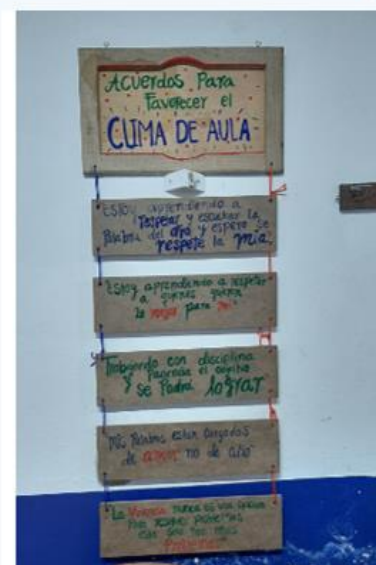 Acuerdos Para
Favorecer el
CLIMA DE AULA
Estoy aprendiendo a
respetar y escuchar la
Palabra del otro y espero se
respete la mia.
Estoy aprendiendo a respetar
a quienes quieren
lo mejor para mi"
Trabajando con disciplina
y paciencia el
se Podrá lograr
Mis Palabras estan cargadas
de amor no de
"La Violencia nunca es una
Para resolver problemas